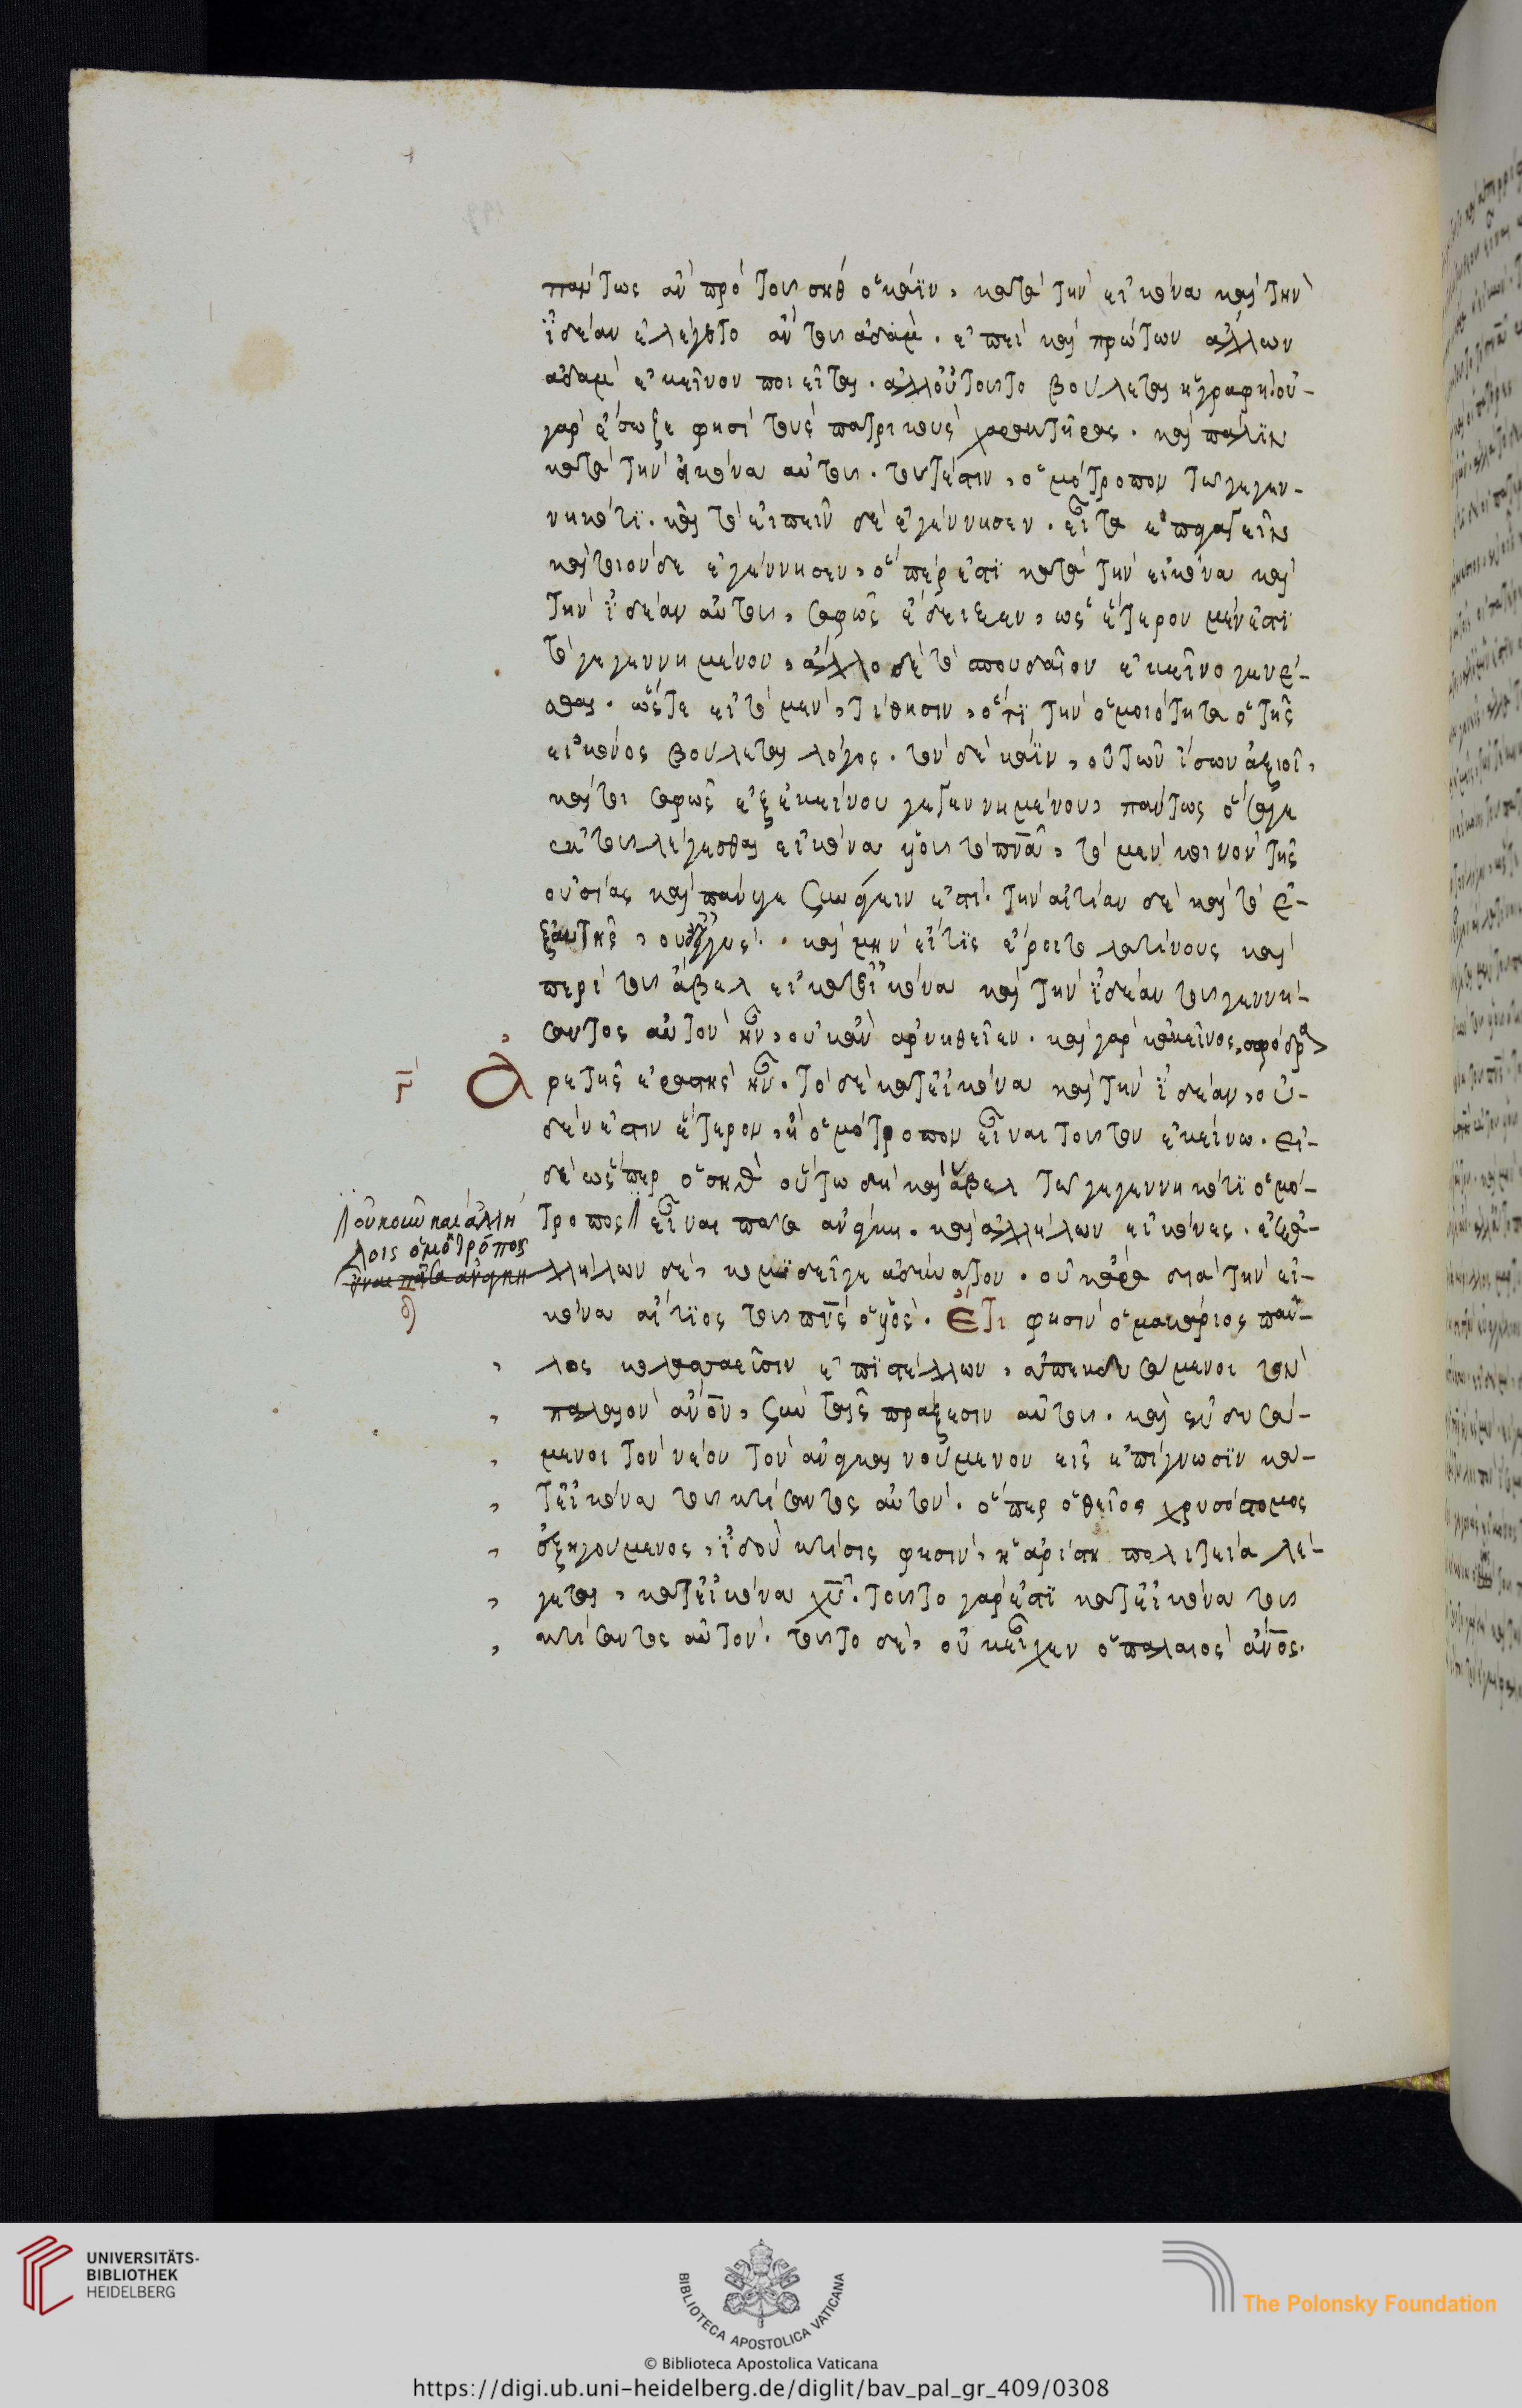 πάντως ἂν πρὸ τοῦ σὴθ ὁ κάϊν, κατὰ τὴν εἰκόνα καὶ τὴν
ἰδέαν ἐλέγετο ἂν τοῦ ἀδάμ. ἐπεὶ καὶ πρώτων ἄλλων
ἀδὰμ ἐκεῖνον ποιεῖται. ἀλλ' οὐ τοῦτο βούλεται ἡ γραφή. οὐ-
γὰρ ἔσωζε φησὶ τοὺς πατρικοὺς χαρακτῆρας. καὶ πάλιν
κατὰ τὴν εἰκόνα αὐτοῦ. τουτέστιν, ὁμότροπον τῷ γεγεν-
νηκότι. καὶ τὸ εἰπεῖν δὲ ἐγέννησεν. εἶτα ἐπαγαγεῖν
καὶ τοιόνδε ἐγέννησεν, ὅπερ ἐστὶ κατὰ τὴν εἰκόνα καὶ
τὴν ἰδέαν αὐτοῦ, σαφῶς ἔδειξεν, ὡς ἕτερον μέν ἐστι
τὸ γεγεννημένον, ἄλλο δὲ τὸ σπουδαῖον ἐκεῖνο γενέ-
σθαι. ὥστε εἰ τὸ μὲν τίθησιν, ὅτι τὴν ὁμοιότητα ὁ τῆς
εἰκόνος βούλεται λόγος. τὸν δὲ κάϊν, οὐ τῶν ἴσων ἀξιοῖ,
καίτοι σαφῶς ἐξ ἐκείνου γεγεννημένου, πάντως ὅσα γε
ἐκ τοῦ λέγεσθαι εἰκόνα υἱοῦ τὸ πνα, τὸ μὲν κοινὸν τῆς
οὐσίας καὶ πάνυ γε συνάγειν ἐστί. τὴν αἰτίαν δὲ καὶ τὸ ἐ-
ξ αὐτῆς, οὐδ' ἐγγύς. καὶ μὴν εἴ τις ἔροιτο λατίνους καὶ
περὶ τοῦ ἄβελ εἰ κατ' εἰκόνα καὶ τὴν ἰδέαν τοῦ γεννή-
σαντος αὐτὸν ἦν, οὐκ ἂν ἀρνηθεῖεν. καὶ γὰρ κἀκεῖνος, σφόδρα
ἀρετῆς ἐραστὴς ἦν. τὸ δὲ κατ' εἰκόνα καὶ τὴν ἰδέαν, οὐ-
δέν ἐστιν ἕτερον, ἢ ὁμότροπον εἶναι τοῦτον ἐκείνῳ. εἰ-
δὲ ὥσπερ ὁ σὴθ οὕτω δὴ καὶ ἄβελ τῷ γεγεννηκότι ὁμό-
τροπος εἶναι πᾶσα ἀνάγκη. καὶ ἀλλήλων εἰκόνες. ἐξ ἀ-
λλήλων δὲ, κομιδῇ γε ἀδύνατον. οὐκ ἄρα διὰ τὴν εἰ-
κόνα αἴτιος τοῦ πνς ὁ υἱός. Ἔτι φησὶν ὁ μακάριος παῦ-
λος κολασσαεῦσιν ἐπιστέλλων, ἀπεκδυσάμενοι τὸν
παλαιὸν ἄνον, σὺν ταῖς πράξεσιν αὐτοῦ. καὶ ἐνδυσά-
μενοι τὸν νέον τὸν ἀνακαινούμενον εἰς ἐπίγνωσιν κα-
τ' εἰκόνα τοῦ κτίσαντος αὐτόν. ὅπερ ὁ θεῖος χρυσόστομος
ἐξηγούμενος, ἰδοὺ κτίσις φησὶν, ἡ ἀρίστη πολιτεία λέ-
γεται, κατ' εἰκόνα χυ. τοῦτο γάρ ἐστι κατ' εἰκόνα τοῦ
κτίσαντος αὐτόν. τοῦτο δὲ, οὐκ εἶχεν ὁ παλαιὸς ἄνος.
οὐκοῦν καὶ ἀλλή
λοις ὁμότροπος
εἶναι πᾶσα ἀνάγκη
UNIVERSITÄTS-
BIBLIOTHEK
HEIDELBERG
BIBLIOTECA APOSTOLICA VATICANA
© Biblioteca Apostolica Vaticana
The Polonsky Foundation
https://digi.ub.uni-heidelberg.de/diglit/bav_pal_gr_409/0308